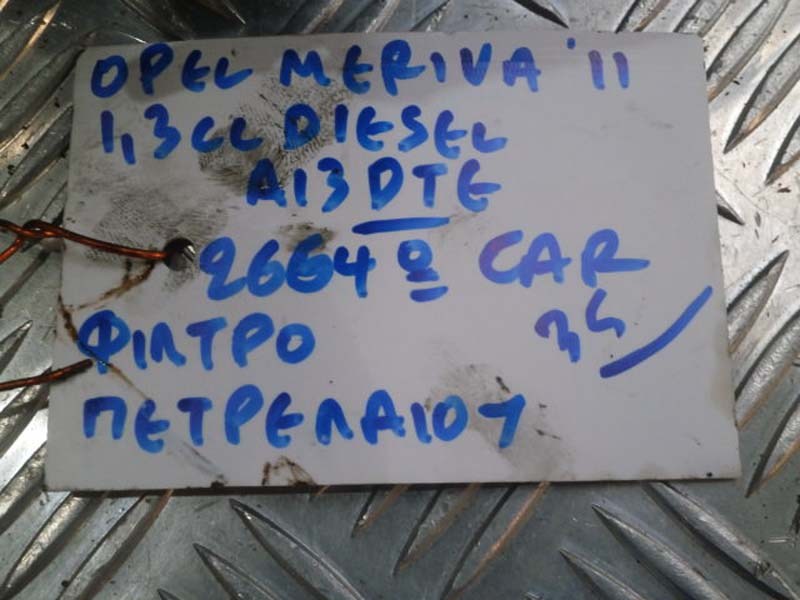 OPEL MERIVA '11
1,3 cc DIESEL
A13DTE
26642 CAR
ΦΙΛΤΡΟ 35
ΠΕΤΡΕΛΑΙΟΥ